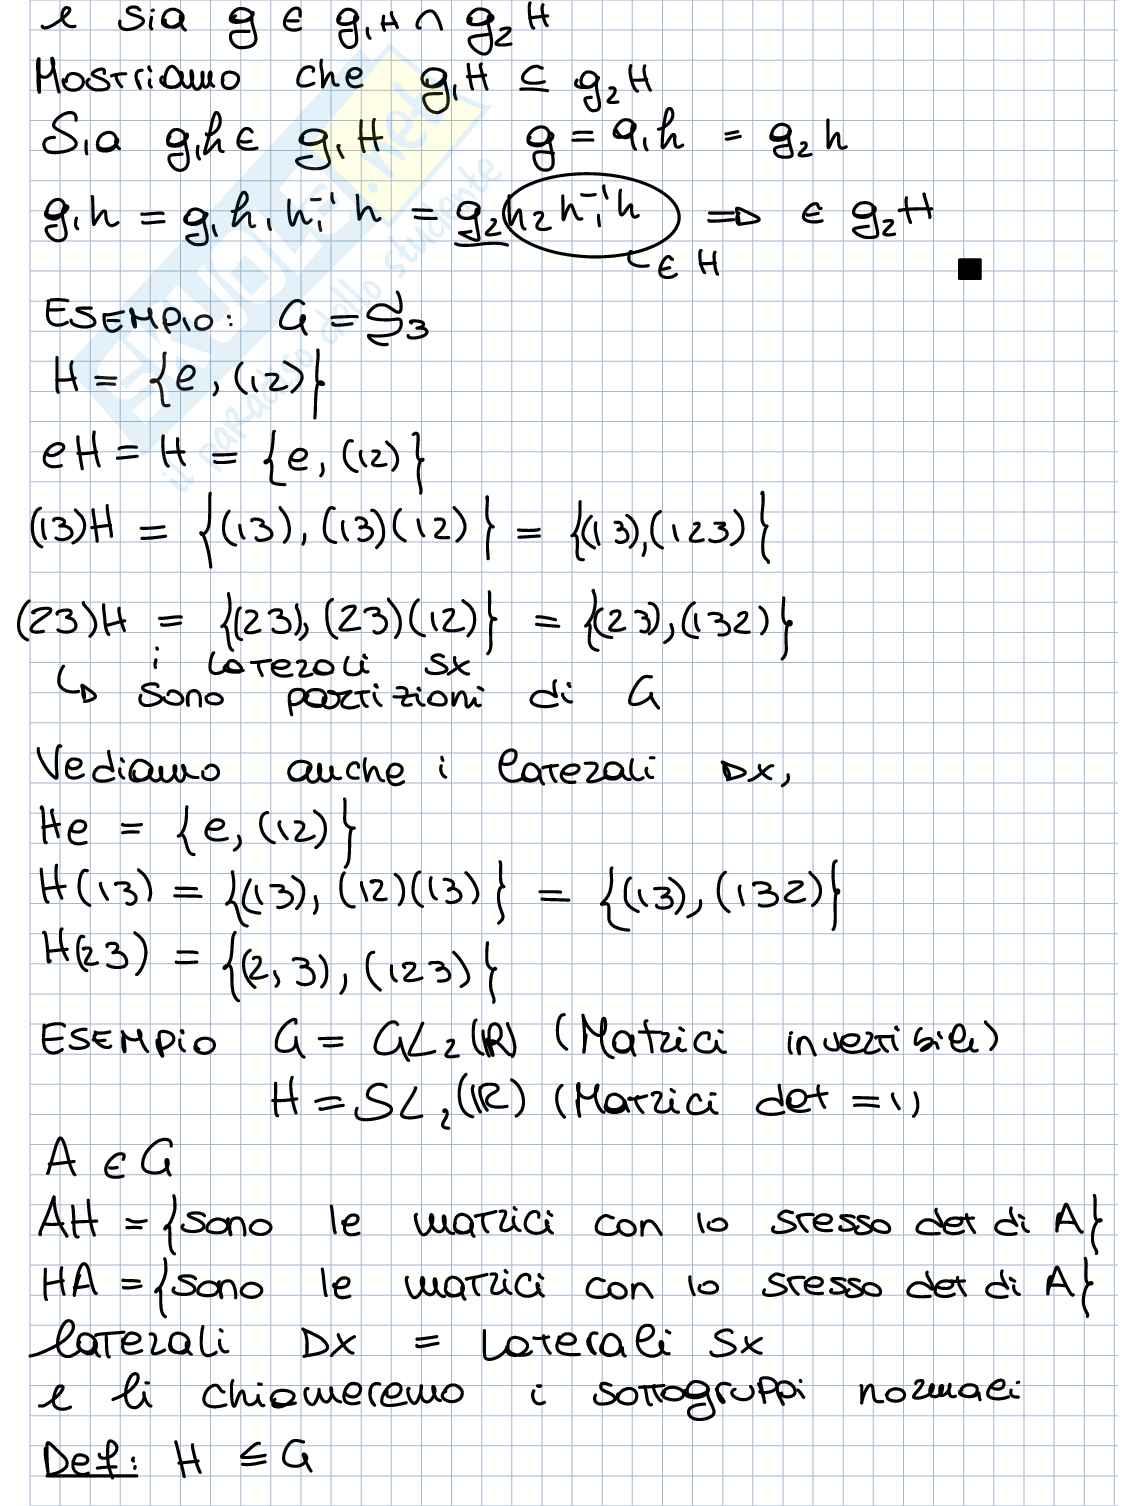 e sia g ∈ g₁H ∩ g₂H
Mostriamo che g₁H ⊆ g₂H
Sia g₁h ∈ g₁H g = g₁h = g₂h
g₁h = g₁h₁h₁⁻¹h = g₂h₂h₁⁻¹h ⇒ ∈ g₂H
∈ H ■
ESEMPIO: G = S₃
H = {e, (12)}
eH = H = {e, (12)}
(13)H = {(13), (13)(12)} = {(13), (123)}
(23)H = {(23), (23)(12)} = {(23), (132)}
i laterali sx
↳ sono partizioni di G
Vediamo anche i laterali Dx,
He = {e, (12)}
H(13) = {(13), (12)(13)} = {(13), (132)}
H(23) = {(2,3), (123)}
ESEMPIO G = GL₂(ℝ) (Matrici invertibili)
H = SL₂(ℝ) (Matrici det = 1)
A ∈ G
AH = {sono le matrici con lo stesso det di A}
HA = {sono le matrici con lo stesso det di A}
laterali Dx = Laterali Sx
e li chiameremo i sottogruppi normali
Def: H ≤ G
SKUOLA.net
il paradiso dello studente